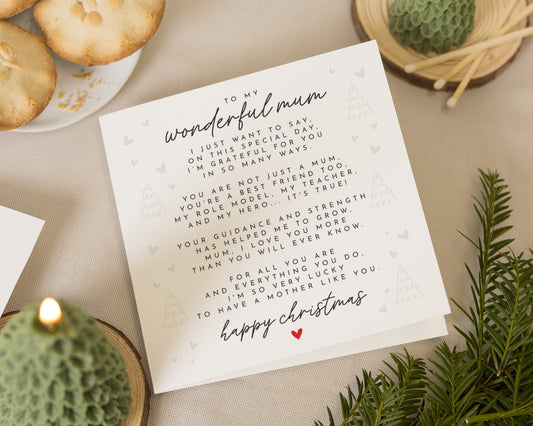 TO MY
wonderful mum
I JUST WANT TO SAY,
ON THIS SPECIAL DAY,
I'M GRATEFUL FOR YOU
IN SO MANY WAYS.
YOU ARE NOT JUST A MUM,
YOU'RE A BEST FRIEND TOO,
MY ROLE MODEL, MY TEACHER,
AND MY HERO... IT'S TRUE!
YOUR GUIDANCE AND STRENGTH
HAS HELPED ME TO GROW,
MUM, I LOVE YOU MORE
THAN YOU WILL EVER KNOW.
FOR ALL YOU ARE
AND EVERYTHING YOU DO,
I'M SO VERY LUCKY
TO HAVE A MOTHER LIKE YOU.
happy christmas